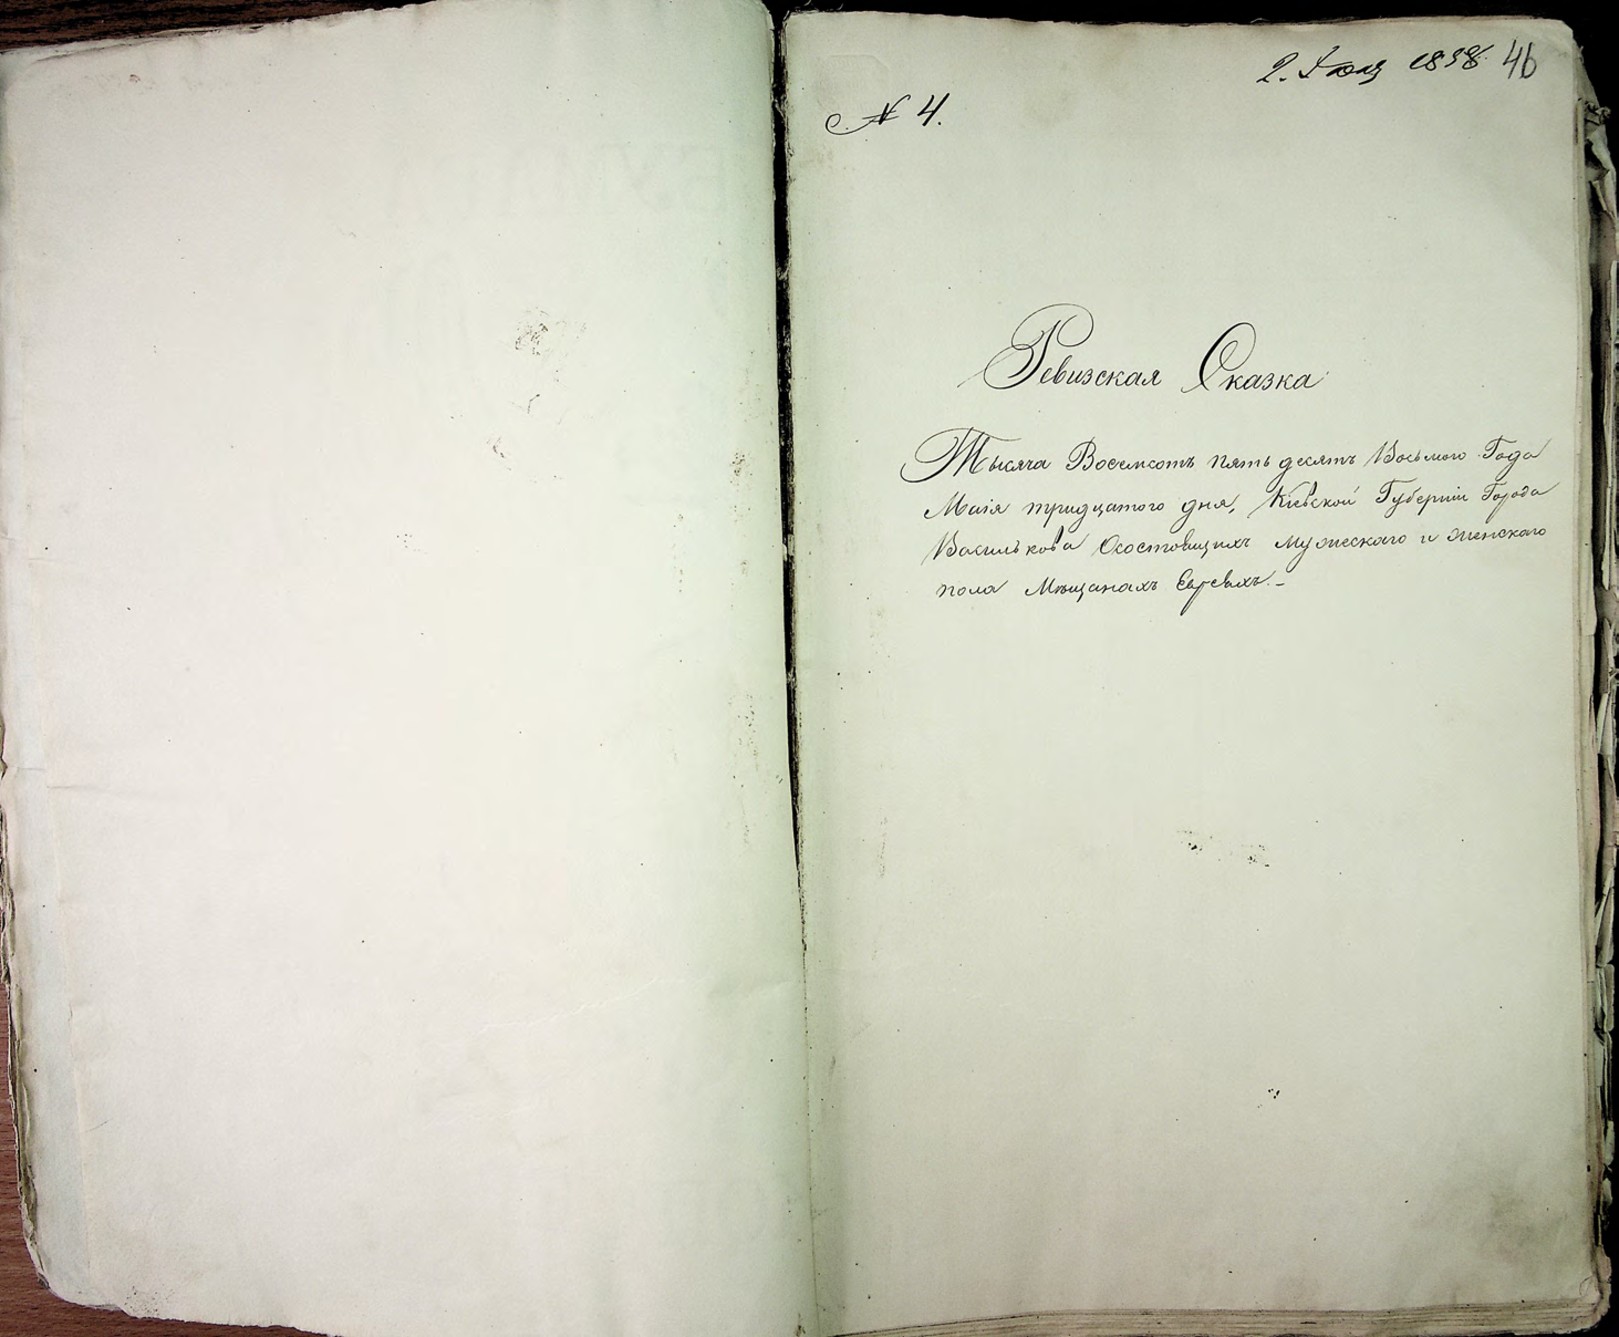 2. Іюля 1858 46
№ 4.
Ревизская Сказка
Тысяча Восемсотъ пять десятъ Восьмого Года
Маія тридцатого дня, Кіевской Губерніи Города
Василькова Осостоящихъ мужескаго и женскаго
пола Мѣщанахъ Евреяхъ.-